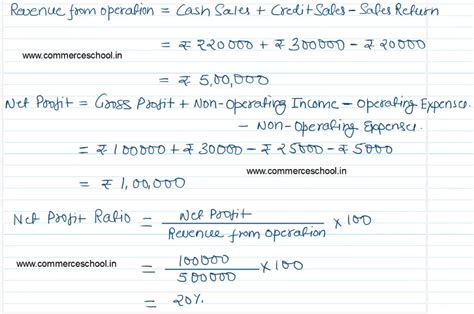 Revenue from operation = Cash Sales + Credit Sales - Sales Return
= ₹ 220000 + ₹ 300000 - ₹ 20000
www.commerceschool.in
= ₹ 5,00,000
Net Profit = Gross Profit + Non-Operating Income - Operating Expenses
- Non-Operating Expenses.
= ₹ 100000 + ₹ 30000 - ₹ 25000 - ₹ 5000
www.commerceschool.in
= ₹ 1,00,000
Net Profit Ratio = Net Profit / Revenue from operation × 100
www.commerceschool.in
= 100000 / 500000 × 100
= 20%